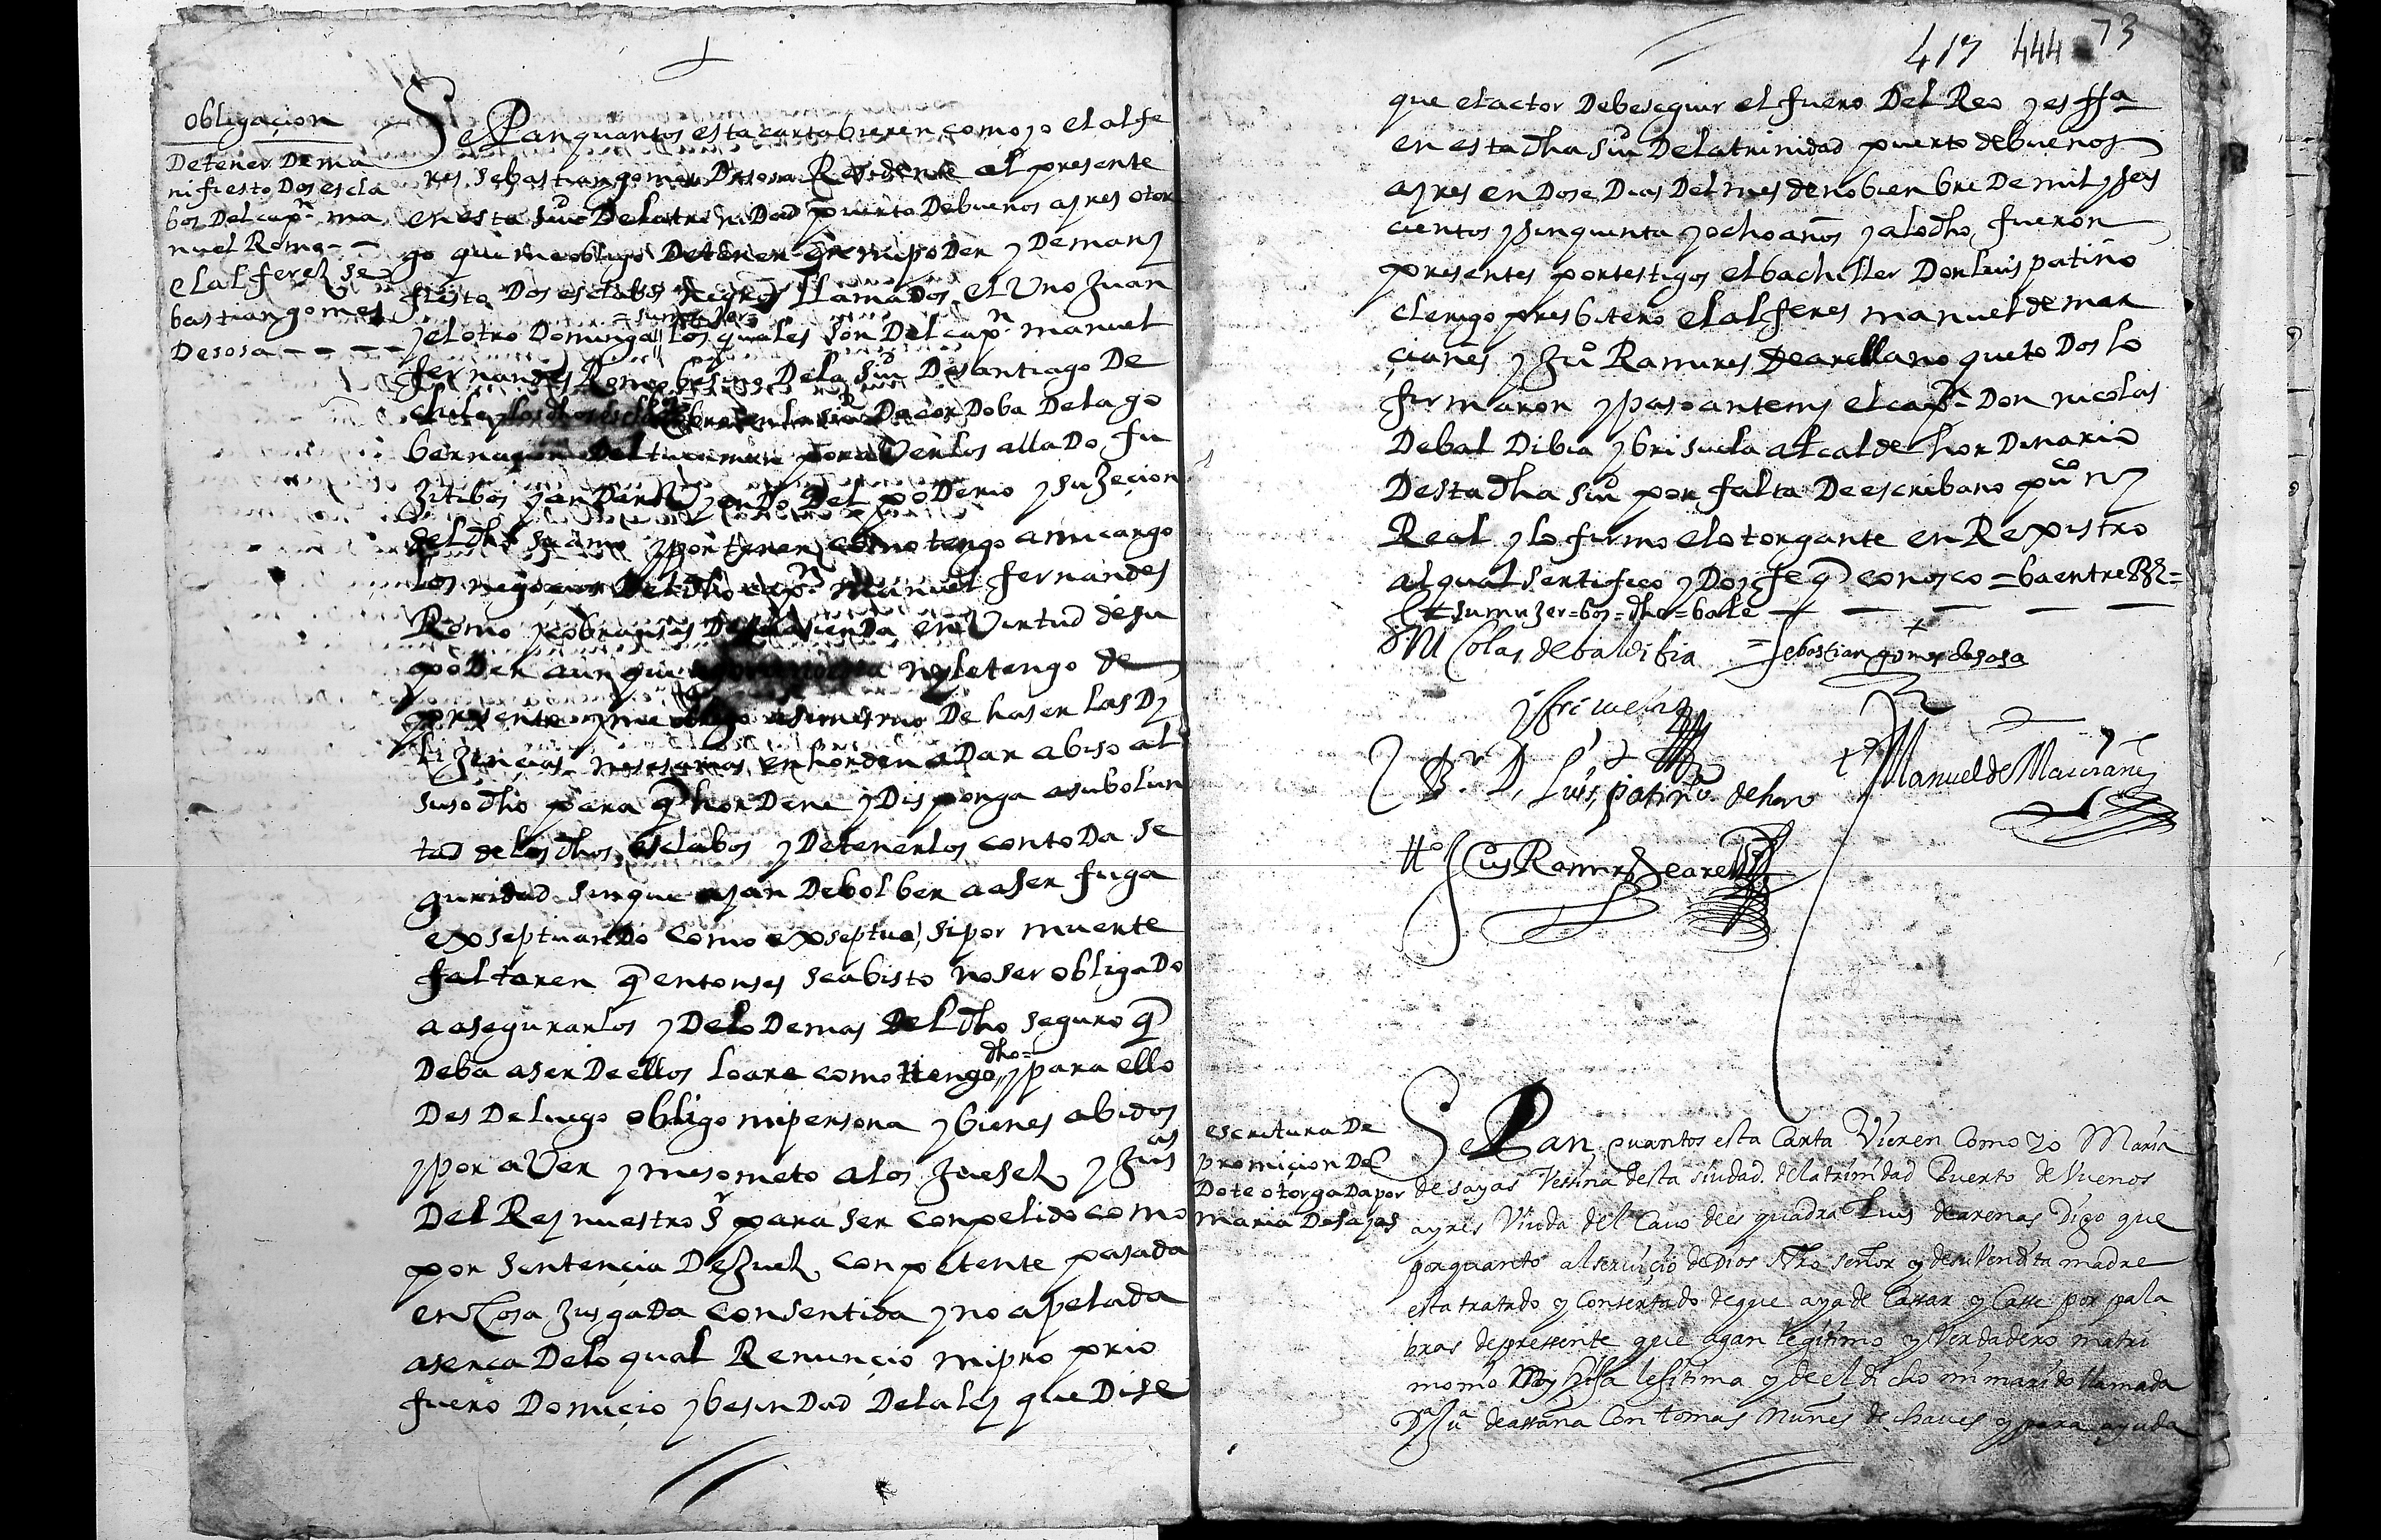 obligaçion
Detener De ma
nifiesto Dos escla
bos Del capn. ma
nuel Romo - -
el alferez se
bastian gomes
Desosa - - - -
Sepan quantos esta carta bieren como yo el alfe
res sebastian gomes Desosa Residente al presente
en esta siud Delatrinidad puerto Debuenos ayres otor
go que me obligo Detener en mi poder y De many
fiesto Dos esclabos negros llamados el Uno Juan
= su muger =
y el otro Dominga los quales son Del capn manuel
fernandes Romo besino Dela siud Desantiago De
chile y los dhos escl en la siud Decordoba Dela go
bernaçion Del tucuman por averlos allado fu
Jitibos y andar Uyendo Del poderio y suJeçion
del dho su amo y por tener como tengo a mi cargo
los negoçios Del dho capn. Manuel fernandes
Romo y cobransas De su asienda en Virtud de su
poder aunque ny le tengo de
presente y me obligo asimismo De haser las Dy
liJençias nesesarias en horden a Dar abiso al
suso dho para q hordene y Disponga a su bolun
tad de los dhos esclabos y Detenerlos con toda se
guridad sin que ayan Debolber a aser fuga
exseptuando como exseptuo, si por muerte
faltaren q entonses sea bisto no ser obligado
a asegurarlos y Delo Demas Del dho seguro q
dho =
Deba aser De ellos loare como ttengo y para ello
Des De luego obligo mi persona y bienes abidos
y por aVer y me someto a los Juesez y Jusas
Del Rey nuestro Sr para ser conpelido como
por sentençia DeJuez conpetente pasada
en Cosa JusgaDa consentida y no apelada
aserca Delo qual Renunçio mi pro prio
fuero Domiçio y besindad Dela ley que Dise
417 444 73
que el actor Debe seguir el fuero Del Reo y es ffa
en esta dha siud Delatrinidad puerto debuenos
ayres en Dose Dias Del mes de nobienbre De mil y seis
cientos y sinquenta y ocho años y alo dho fueron
presentes por testigos el bachiller Don luis patiño
clerigo presbitero el alferes manuel de mar
çianes y Juo Ramires De arellano que todos lo
firmaron y paso ante my el capn Don nicolas
Debaldibia y brisuela alcalde hordinario
Desta dha siud por falta De escribano puco ny
Real y lo firmo el otorgante en Rexistro
al qual sertifico y Doy fe q conosco = ba entre RRs =
su muJer = bos = dho = bale
D. Nicolas debaldibia = sebastian gomes desosa
y briçuela
Br. D. Luis patiño de haro to Manuel de Marcianes
tto Juo Ramires de arell
escritura De
promiçion Del
Dote otorgada por
maria Desayas
Sepan quantos esta Carta Vieren Como yo Maria
de sayas Vessina desta siudad de la trinidad Puerto de Vuenos
ayres Viuda del Cauo de esquadra Luis de arenas Digo que
por quanto al seruiçio de Dios Nro señor y de su Vendita madre
esta tratado y Consertado de que aya de Cassar y Casse por pala
bras de pressente que agan legitimo y Verdadero matri
monio My hija lesitima y de el dicho mi marido llamada
Da Jua de assana Con tomas nunes de chaues y para ayuda